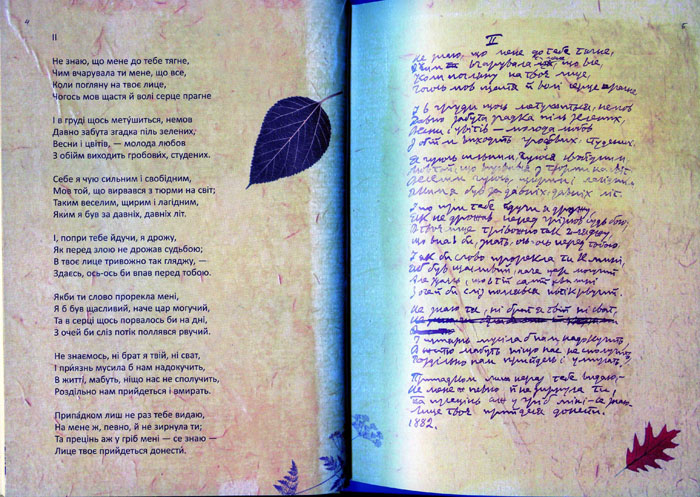 4
II
Не знаю, що мене до тебе тягне,
Чим вчарувала ти мене, що все,
Коли погляну на твоє лице,
Чогось мов щастя й волі серце прагне
І в груді щось метушиться, немов
Давно забута згадка піль зелених,
Весни і цвітів, — молода любов
З обійм виходить гробових, студених.
Себе я чую сильним і свобідним,
Мов той, що вирвався з тюрми на світ;
Таким веселим, щирим і лагідним,
Яким я був за давніх, давніх літ.
І, попри тебе йдучи, я дрожу,
Як перед злою не дрожав судьбою;
В твоє лице тривожно так гляджу, —
Здаєсь, ось-ось би впав перед тобою.
Якби ти слово прорекла мені,
Я б був щасливий, наче цар могучий,
Та в серці щось порвалось би на дні,
З очей би сліз потік поллявся рвучий.
Не знаємось, ні брат я твій, ні сват,
І приязнь мусила б нам надокучить,
В житті, мабуть, ніщо нас не сполучить,
Роздільно нам прийдеться і вмирать.
Припадком лиш не раз тебе видаю,
На мене ж, певно, й не зирнула ти;
Та прецінь аж у гріб мені — се знаю —
Лице твоє прийдеться донести.
II
Не знаю, що мене до тебе тягне,
вчарувала що все,
Коли погляну на твоє лице,
Чогось мов щастя й волі серце прагне
І в груди щось немов
Давно забута згадка піль зелених,
Весни і цвітів — молода любов
З обійм виходить гробових, студених.
був за давніх, давніх літ.
тебе йдучи я дрожу,
не дрожав перед судьбою,
В твоє лице тривожно так гляджу,
ось-ось перед тобою.
Як би слово прорекла ти мені,
Я б був щасливий, наче цар могучий
З очей би сліз
ні брат я твій, ні сват,
мусила б нам надокучить
мабуть ніщо нас не сполучить
Роздільно нам прийдесь і умирать.
Припадком лиш тебе видаю,
На мене ж певно й не зирнула ти,
Та прецінь аж у гріб мені — се знаю
Лице твоє прийдеся донести.
1882.